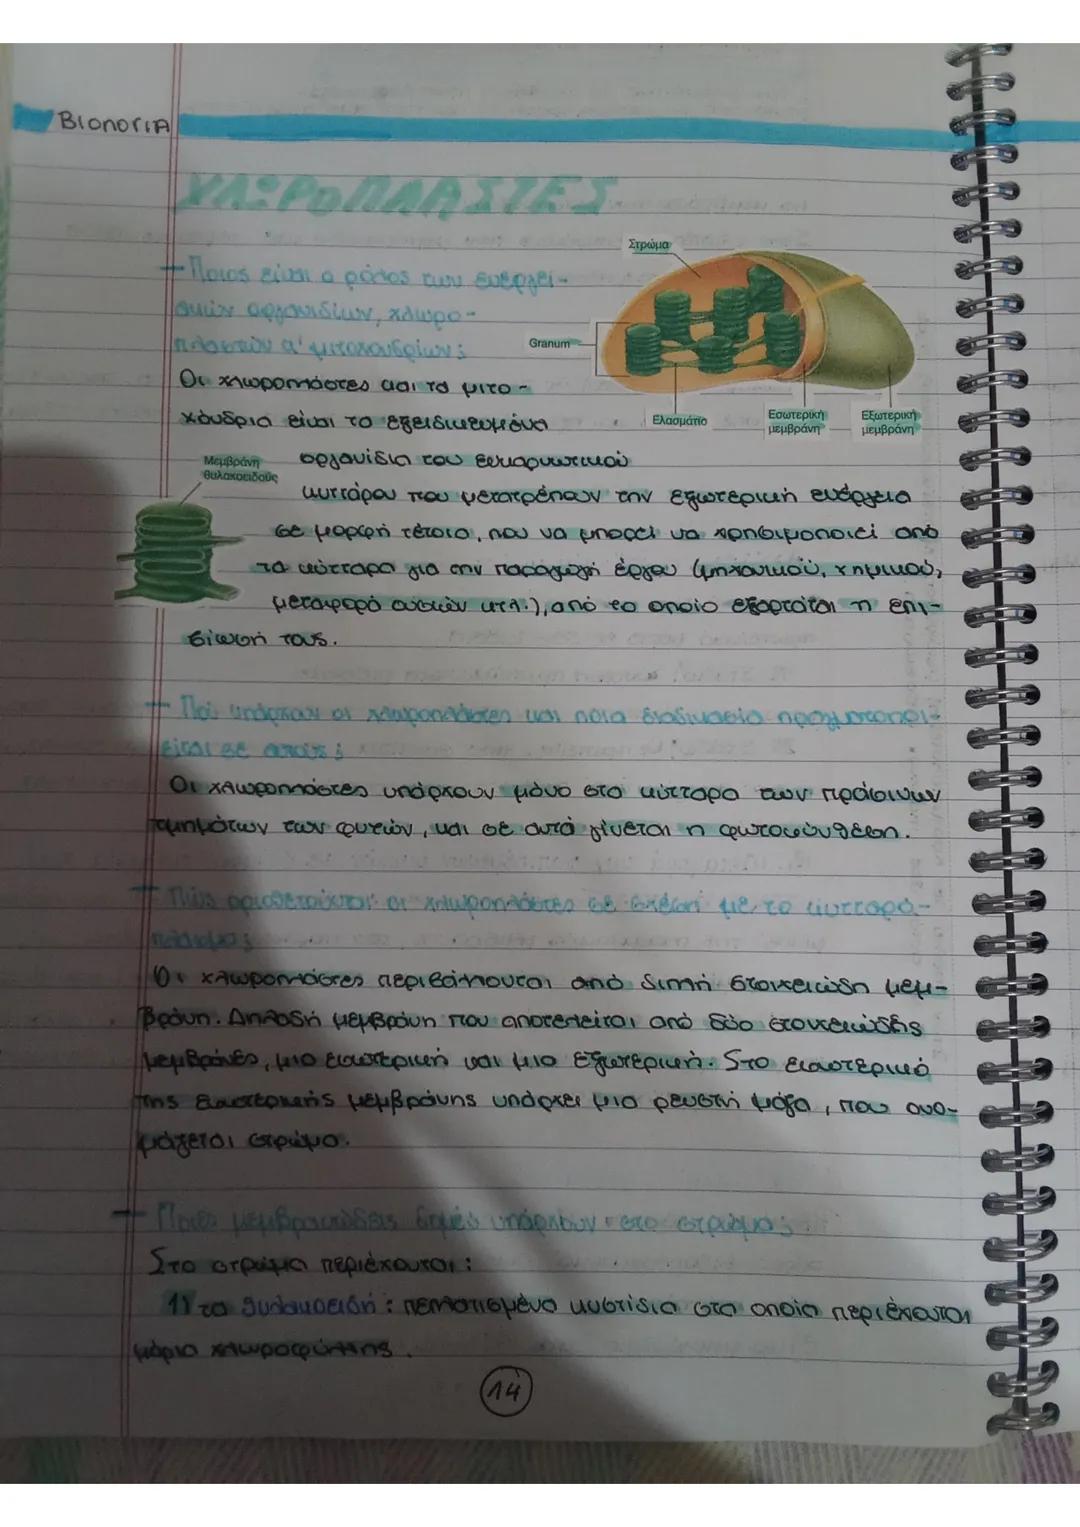 ΒΙΟΛΟΓΙΑ
ΧΛΩΡΟΠΛΑΣΤΕΣ
Στρώμα
- Ποιος είναι ο ρόλος των ενεργει-
ακών οργανιδίων, χλωρο-
πλαστών κ' μιτοχονδρίων;
Granum
Οι χλωροπλάστες και τα μιτο-
χόνδρια είναι τα εξειδικευμένα
Ελασμάτιο
Εσωτερική μεμβράνη
Εξωτερική μεμβράνη
οργανίδια του ευκαρυωτικού
Μεμβράνη θυλακοειδούς
κυττάρου που μετατρέπουν την εξωτερική ενέργεια
σε μορφή τέτοια, που να μπορεί να χρησιμοποιεί από
τα κύτταρα για την παραγωγή έργου (μηχανικού, χημικού,
μεταφορά ουσιών κτλ.), από το οποίο εξαρτάται η επι-
βίωσή τους.
- Πού υπάρχουν οι χλωροπλάστες και ποια διαδικασία πραγματοποι-
είται σε αυτούς;
Οι χλωροπλάστες υπάρχουν μόνο στα κύτταρα των πράσινων
τμημάτων των φυτών, και σε αυτά γίνεται η φωτοσύνθεση.
- Πώς οριοθετούνται οι χλωροπλάστες σε σχέση με το κυτταρό-
πλασμα;
Οι χλωροπλάστες περιβάλλονται από διπλή στοιχειώδη μεμ-
βράνη. Δηλαδή μεμβράνη που αποτελείται από δύο στοιχειώδης
μεμβράνες, μια εσωτερική και μια εξωτερική. Στο εσωτερικό
της εσωτερικής μεμβράνης υπάρχει μια ρευστή μάζα, που ονο-
μάζεται στρώμα.
- Ποιες μεμβρανώδεις δομές υπάρχουν στο στρώμα;
Στο στρώμα περιέχονται:
1) τα θυλακοειδή: πεπλατισμένα κυστίδια στα οποία περιέχονται
μόρια χλωροφύλλης.
14